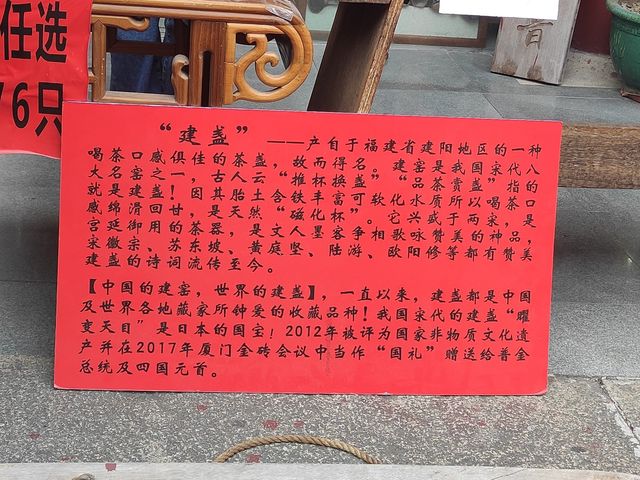 任选
6只
“建盏”——产自于福建省建阳地区的一种
喝茶口感俱佳的茶盏，故而得名。建窑是我国宋代八
大名窑之一，古人云“推杯换盏”“品茶赏盏”指的
就是建盏！因其胎土含铁丰富可软化水质所以喝茶口
感绵滑回甘，是天然“磁化杯”。它兴盛于两宋，是
宫延御用的茶器，是文人墨客争相歌咏赞美的神品，
宋徽宗、苏东坡、黄庭坚、陆游、欧阳修等都有赞美
建盏的诗词流传至今。
【中国的建窑，世界的建盏】，一直以来，建盏都是中国
及世界各地藏家所钟爱的收藏品种！我国宋代的建盏“曜
变天目”是日本的国宝！2012年被评为国家非物质文化遗
产并在2017年厦门金砖会议中当作“国礼”赠送给普金
总统及四国元首。